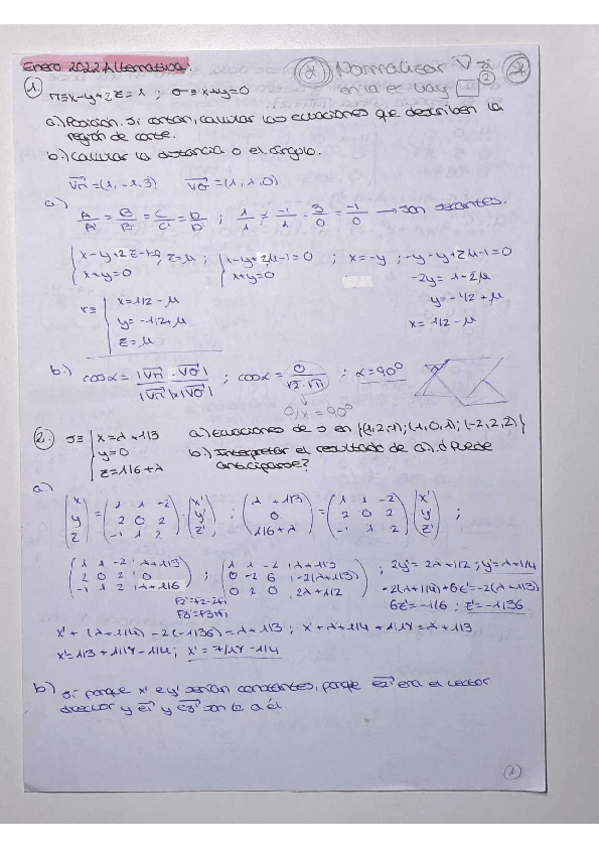 Enero 2022 Alternativa!
(*) Normalizar ∇
(2)
en la ec. hay □
1. π≡x-y+2z=1 ; σ≡x+y=0
a) Posición. Si cortan, calcular las ecuaciones que describen la
región de corte.
b) Calcular la distancia o el ángulo.
Vπ=(1,-1,3) Vσ=(1,1,0)
a) A/A' = B/B' = C/C' = D/D' ; 1/1 ≠ -1/1 = 3/0 = -1/0 → son secantes.
x+y=0 ; z=μ ; { x-y+2μ-1=0 x+y=0 ; x=-y ; -y-y+2μ-1=0
-2y=1-2μ
r≡ { x=1/2-μ
y=-1/2+μ
z=μ
y=-1/2+μ
x=1/2-μ
b) cosα = |Vπ·Vσ| / |Vπ|·|Vσ| ; cosα = 0/√2·√11 ; α=90º
0/x = 90º
2. s≡ { x=λ+1/3
y=0
z=1/6+λ
a) Ecuaciones de s en {(1,2,-1);(1,0,1);(-2,2,2)}
b) Interpretar el resultado de a). ¿Puede
anticiparse?
a)
(x y z) = (1 1 -2 2 0 2 -1 1 2)·(x' y' z') ; (λ+1/3 0 1/6+λ) = (1 1 -2 2 0 2 -1 1 2)(x' y' z') ;
(1 1 -2 | λ+1/3 2 0 2 | 0 -1 1 2 | λ+1/6) ; (1 1 -2 | λ+1/3 0 -2 6 | -2(λ+1/3) 0 2 0 | 2λ+1/2) ; 2y'=2λ+1/2 ; y'=λ+1/4
F2'=F2-2F1
F3'=F3+F1
-2(λ+1/4)+6z'=-2(λ+1/3)
6z'=-1/6 ; z'=-1/36
x'+(λ+1/4)-2(-1/36)=λ+1/3 ; x'+λ+1/4+1/18=λ+1/3
b) Sí porque x' e y' serían constantes, porque e2' era el vector
director y e1' y e3' son ⊥ a él.
(1)